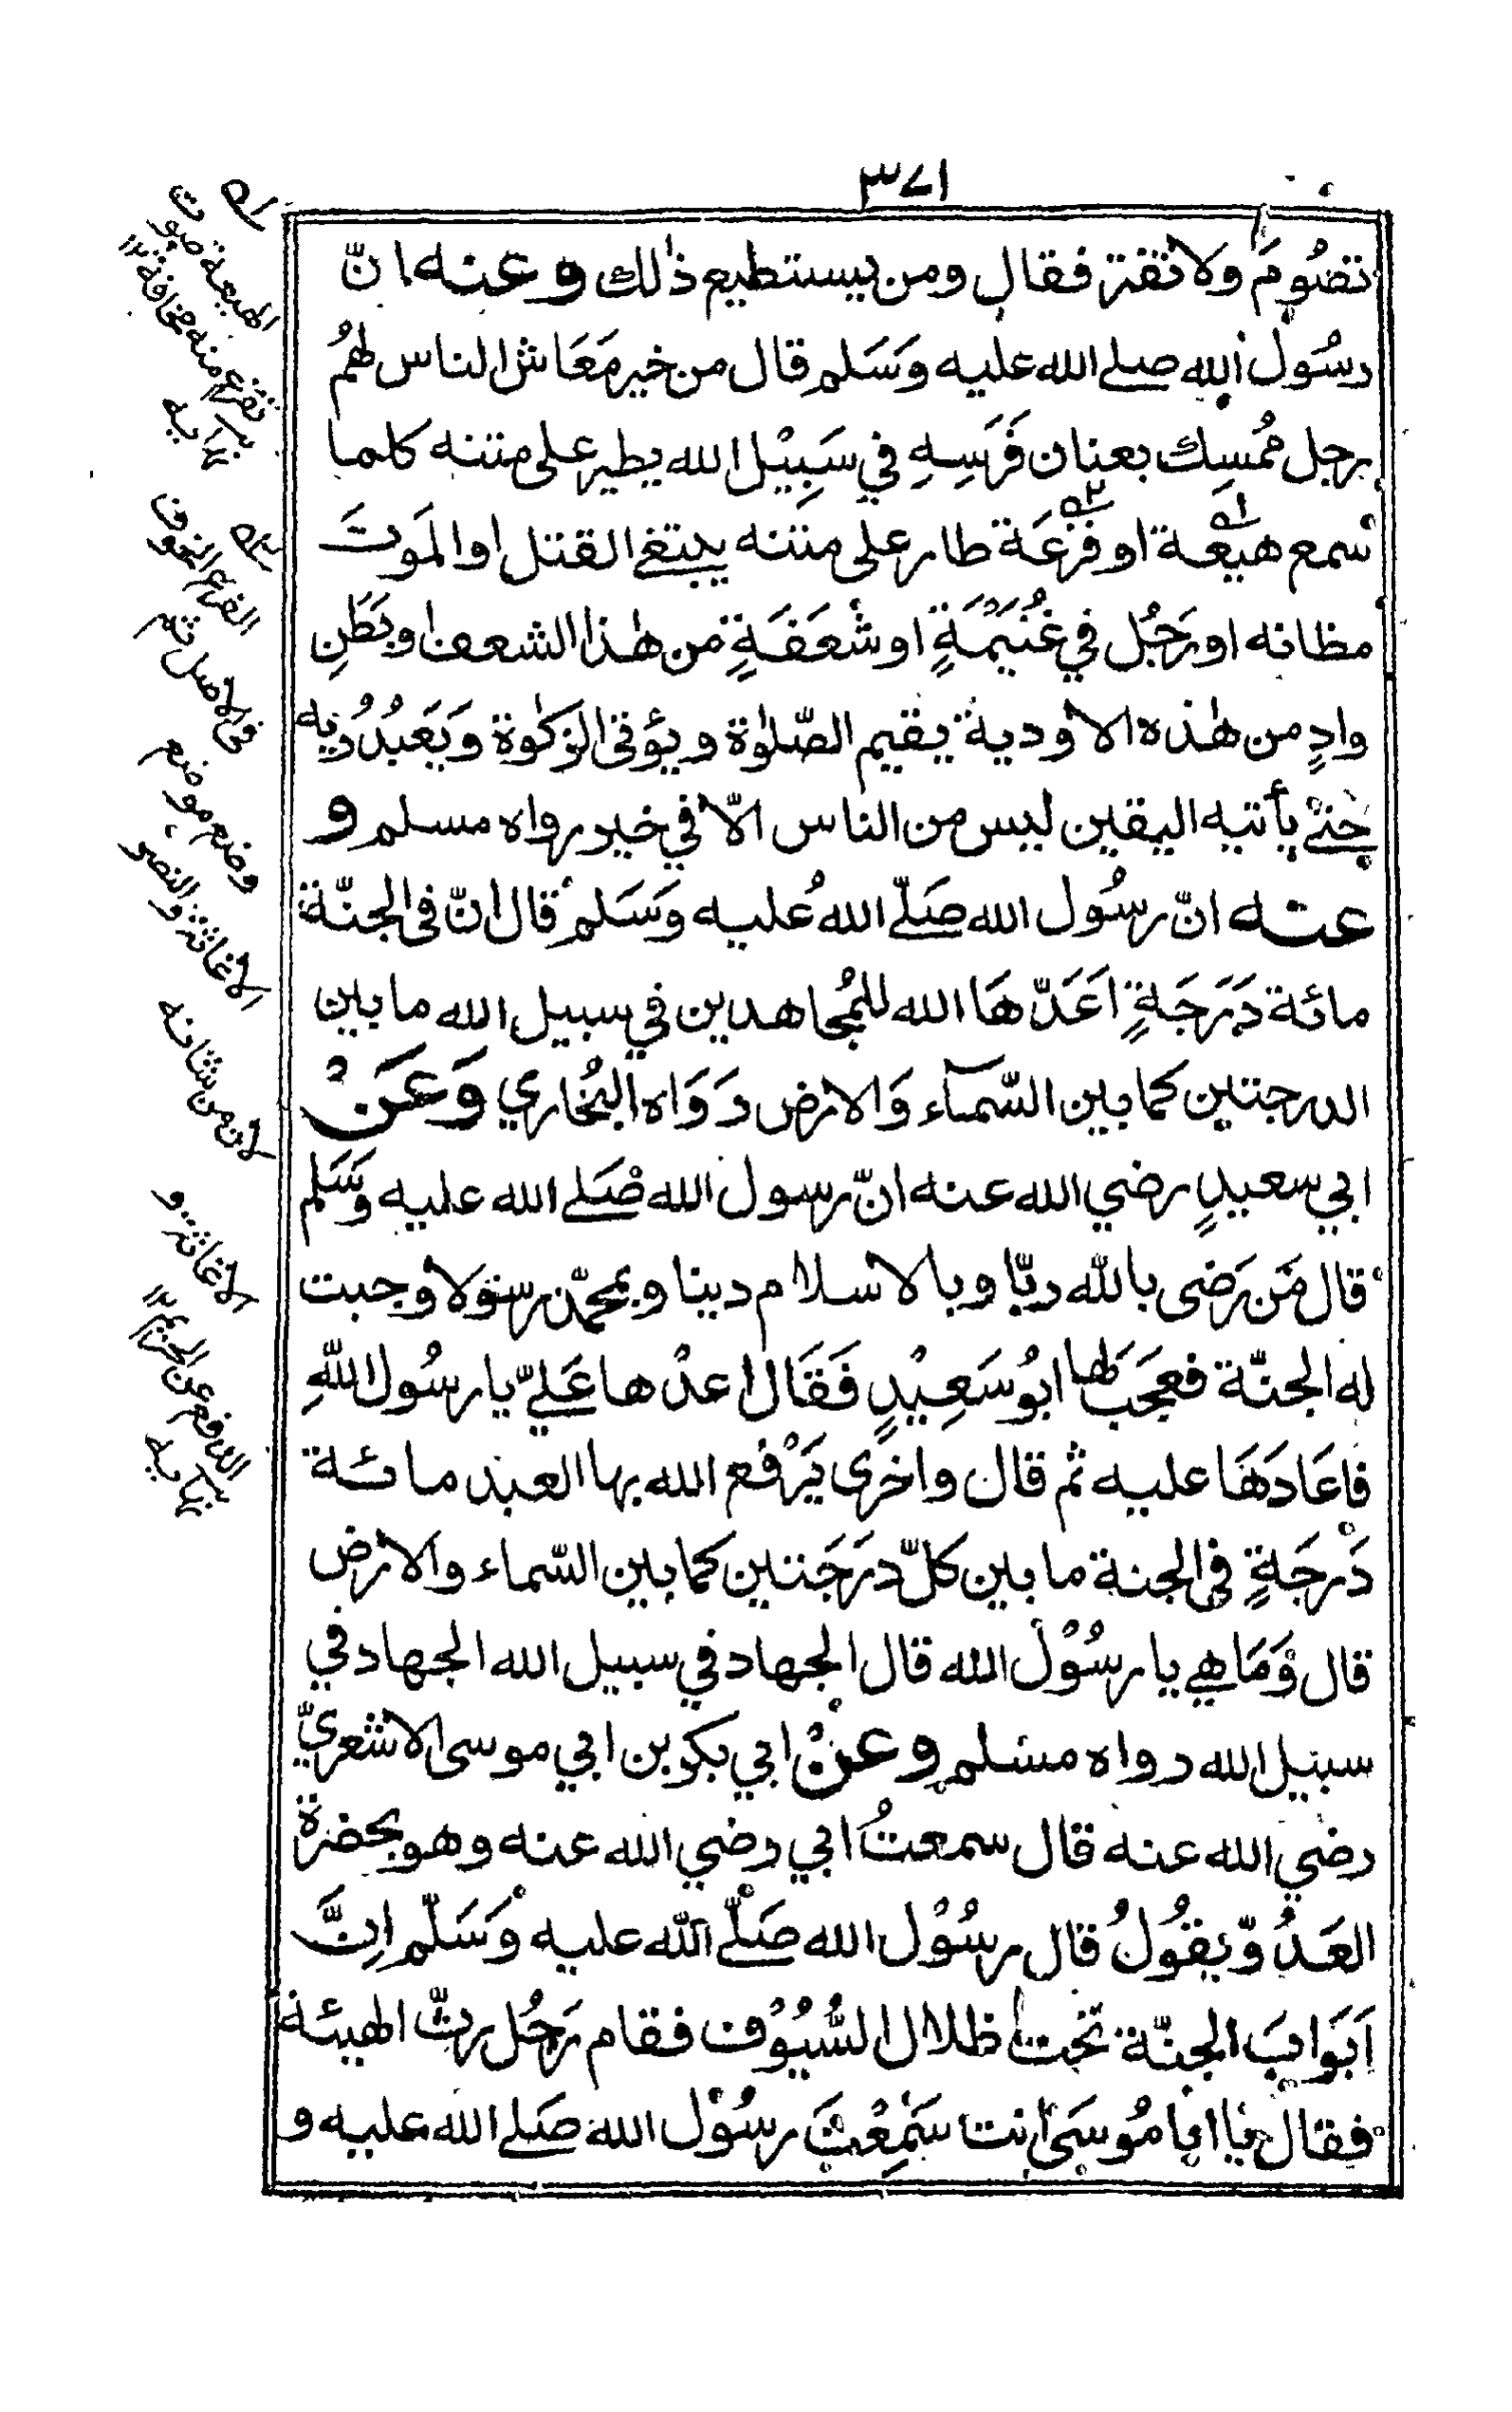 ٣٧١
تصُومَ ولا تفتر فقال ومن يستطيع ذٰلك وعنه انّ
رسُول الله صلے الله عليه وَسَلم قال من خير مَعَاش الناس لهمُ
رجل مُمسِك بعنان فَرَسِهِ في سَبِيْل الله يطير على متنه كلما
سمع هيعة او فزعَة طار على متنه يبتغے القتل او المَوتَ
مظانه او رَجُل في غُنَيْمَةٍ او شَعَفَةٍ من هٰذا الشعف او بَطنِ
وادٍ من هٰذه الاودية يقيم الصّلٰوة ويؤتى الزكٰوة وَيَعبُدُ ربه
حتےٰ يأتيه اليقين ليس من الناس الّا في خير رواه مسلم و
عنه انّ رسُول الله صَلّے الله عُليه وَسَلم قال انّ فى الجنّة
مائة دَرَجَةٍ اَعَدّهَا الله للمُجاهدين في سبيل الله ما بين
الدرجتين كما بين السّمآء وَالارض رَوَاه البُخاري وَعَنْ
ابي سعيدٍ رضي الله عنه انّ رسول الله صَلے الله عليه وَسَلم
قال مَن رَضى بالله ربّا وبالاسلام دينا وبمحمّد رسولا وجبت
له الجنّة فعجَبَ لها ابُو سَعِيْدٍ فَقَال اعدْها عَلےّ يا رسُول اللّٰهِ
فاعَادَهَا عليه ثم قال واخرى يَرْفع الله بها العبد مائة
دَرجَةٍ فى الجنة ما بين كلّ درَجَتين كما بين السّماء والارض
قال وَمَا هي يا رسُوْل الله قال الجهاد في سبيل الله الجهاد في
سبيل الله رواه مسلم وعنْ ابي بكر بن ابي موسى الاشعريّ
رضي الله عنه قال سمعتُ ابي رضي الله عنه وهو بحضرة
العَدُوّ يقُولُ قال رسُوْل الله صَلّے اللّه عليه وَسَلّم اِنَّ
اَبَوابَ الجنّة تحت ظلال السُّيُوْف فقام رَجُل رثّ الهيئة
فقال يا ابا مُوسَى انت سَمِعْتَ رسُوْل الله صَلے الله عليه و
الهيعة صوت
تفزع منه مخافة ١٢
نهايه
الفزع الخوف
فى الاصل ثم
وضع موضع
الاغاثة والنصر
لان من شانه
الاغاثة و
الدفع عن الحريم ١٢
نهايه